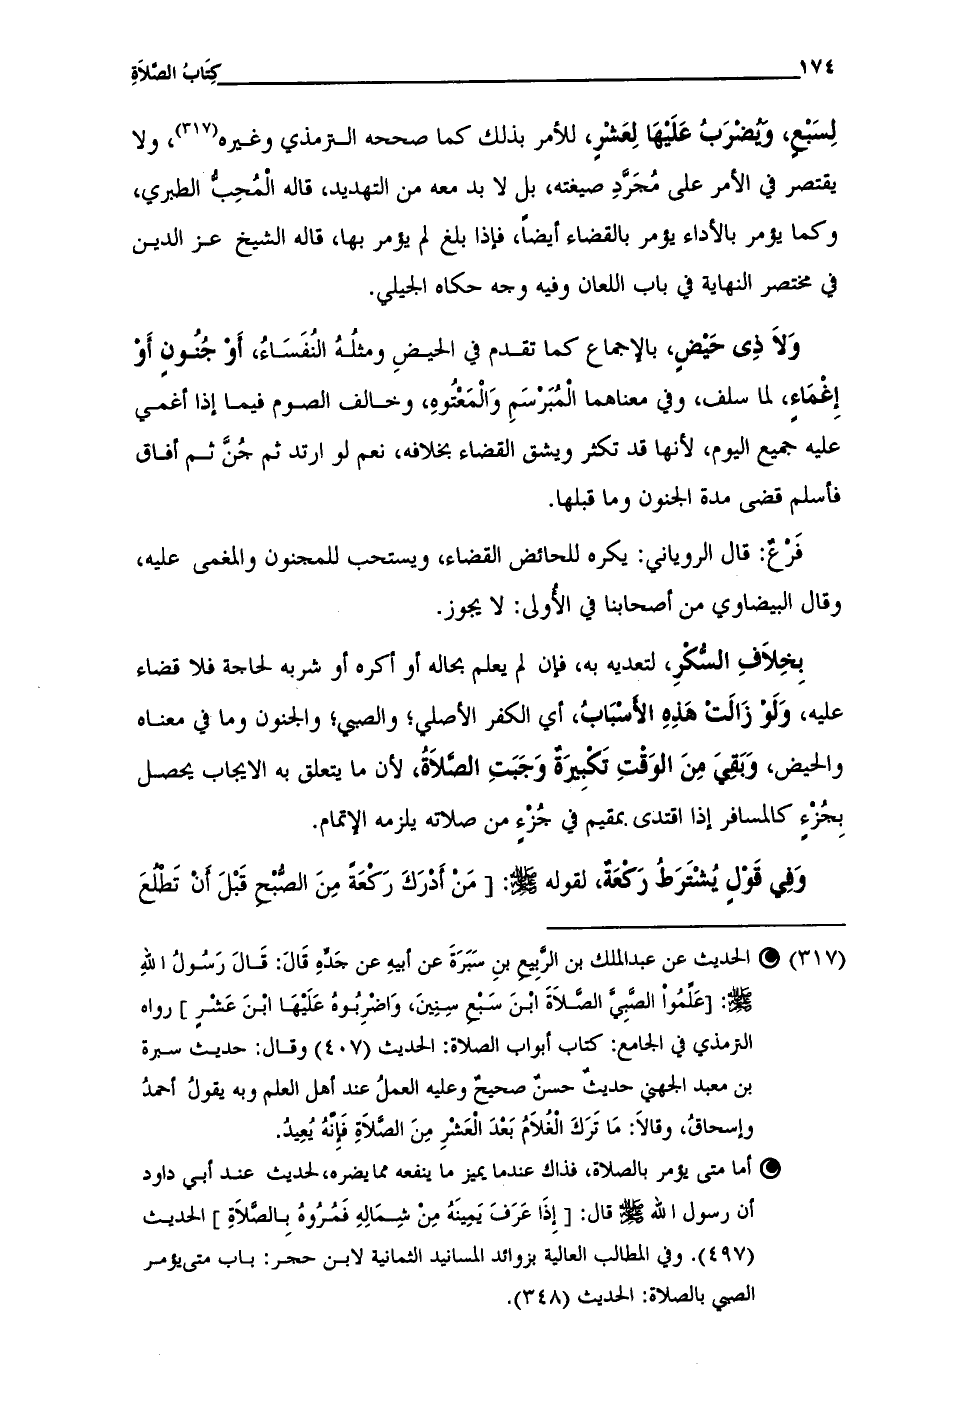 ١٧٤ كِتَابُ الصَّلاَةِ
لِسَبْعٍ، وَيُضْرَبُ عَلَيْهَا لِعَشْرٍ، للأمر بذلك كما صححه الترمذي وغيره(٣١٧)، ولا
يقتصر في الأمر على مُجَرَّدِ صيغته، بل لا بد معه من التهديد، قاله الْمُحِبُّ الطبري،
وكما يؤمر بالأداء يؤمر بالقضاء أيضاً، فإذا بلغ لم يؤمر بها، قاله الشيخ عز الدين
في مختصر النهاية في باب اللعان وفيه وجه حكاه الجيلي.
وَلاَ ذِى حَيْضٍ، بالإجماع كما تقدم في الحيضِ ومثلُهُ النُفَسَاءُ، أَوْ جُنُونٍ أَوْ
إِغْمَاءٍ، لما سلف، وفي معناهما الْمُبَرْسَمِ وَالْمَعْتُوهِ، وخالف الصوم فيما إذا أغمي
عليه جميع اليوم، لأنها قد تكثر ويشق القضاء بخلافه، نعم لو ارتد ثم جُنَّ ثم أفاق
فأسلم قضى مدة الجنون وما قبلها.
فَرْعٌ: قال الروياني: يكره للحائض القضاء، ويستحب للمجنون والمغمى عليه،
وقال البيضاوي من أصحابنا في الأُولى: لا يجوز.
بِخِلاَفِ السُّكْرِ، لتعديه به، فإن لم يعلم بحاله أو أكره أو شربه لحاجة فلا قضاء
عليه، وَلَوْ زَالَتْ هَذِهِ الأَسْبَابُ، أي الكفر الأصلي؛ والصبي؛ والجنون وما في معناه
والحيض، وَبَقِيَ مِنَ الوَقْتِ تَكْبِيرَةٌ وَجَبَتِ الصَّلاَةُ، لأن ما يتعلق به الايجاب يحصل
بِجُزْءٍ كالمسافر إذا اقتدى بمقيم في جُزْءٍ من صلاته يلزمه الإتمام.
وَفِي قَوْلٍ يُشْتَرَطُ رَكْعَةٌ، لقوله ﷺ: [ مَنْ أَدْرَكَ رَكْعَةً مِنَ الصُّبْحِ قَبْلَ أَنْ تَطْلُعَ
(٣١٧) الحديث عن عبدالملك بن الرَّبِيعِ بنِ سَبَرَةَ عن أبيهِ عن جَدِّهِ قَالَ: قَالَ رَسُولُ اللهِ
ﷺ: [عَلِّمُواْ الصَّبِيَّ الصَّلاَةَ ابْنَ سَبْعِ سِنِينَ، وَاضْرِبُوهُ عَلَيْهَا ابْنَ عَشْرٍ ] رواه
الترمذي في الجامع: كتاب أبواب الصلاة: الحديث (٤٠٧) وقال: حديث سبرة
بن معبد الجهني حديثٌ حسنٌ صحيحٌ وعليه العملُ عند أهل العلم وبه يقولُ أحمدُ
وإسحاقُ، وقالاَ: مَا تَرَكَ الْغُلاَمُ بَعْدَ الْعَشْرِ مِنَ الصَّلاَةِ فَإِنَّهُ يُعِيدُ.
أما متى يؤمر بالصلاة، فذاك عندما يميز ما ينفعه مما يضره، لحديث عند أبي داود
أن رسول الله ﷺ قال: [ إِذَا عَرَفَ يَمِينَهُ مِنْ شِمَالِهِ فَمُرُوهُ بِالصَّلاَةِ ] الحديث
(٤٩٧). وفي المطالب العالية بزوائد المسانيد الثمانية لابن حجر: باب متى يؤمر
الصبي بالصلاة: الحديث (٣٤٨).